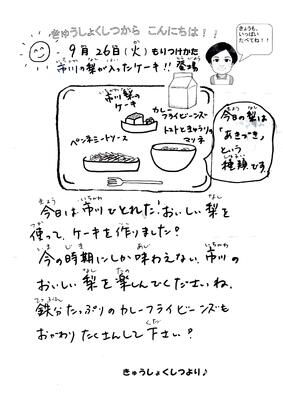 きゅうしょくしつから こんにちは！！
きょうも、
いっぱい
たべてね！！
9月26日(火)もりつけかた
市川の梨が入ったケーキ！！登場
市川梨の
ケーキ
カレー
フライビーンズ
トマトときゅうりの
マリネ
ペンネミートソース
今日の梨は
「あきづき」
という
種類です。
今日は市川でとれたおいしい梨を
使って、ケーキを作りました？
今の時期にしか味わえない市川の
おいしい梨を楽しんでくださいね。
鉄分たっぷりのカレーフライビーンズも
おかわりたくさんして下さい？
きゅうしょくしつより♪